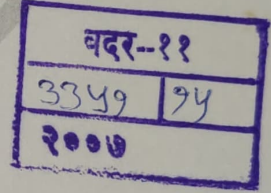 बदर--११
३३५१ १५
२००७